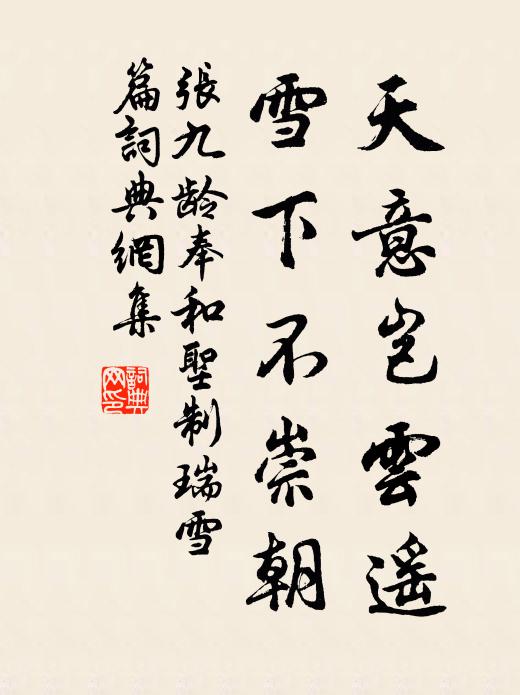 天意岂雲遥
雪下不崇朝
張九龄奉和聖制瑞雪
篇詞典網集
詞典網印